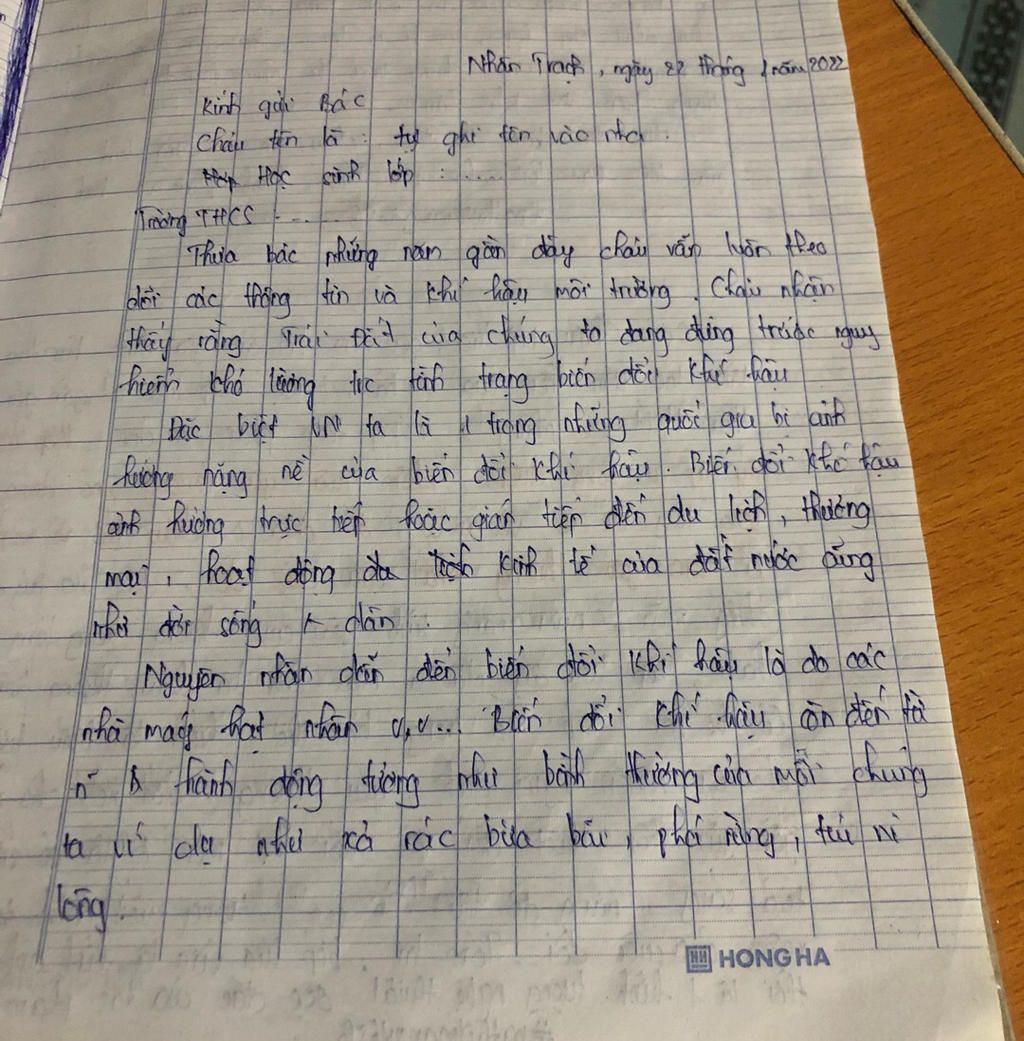 Nhân Trạch, ngày 22 tháng 1 năm 2022
Kính gửi Bác
Cháu tên là : tự ghi tên vào nha.
Học sinh lớp : ....
Trường THCS .....
Thưa bác những năm gần đây cháu vẫn luôn theo
dõi các thông tin và khí hậu môi trường. Cháu nhận
thấy rằng Trái Đất của chúng ta đang đứng trước nguy
hiểm khó lường tức tình trạng biến đổi khí hậu
Đặc biệt VN ta là 1 trong những quốc gia bị ảnh
hưởng nặng nề của biến đổi khí hậu. Biến đổi khí hậu
ảnh hưởng trực tiếp hoặc gián tiếp đến du lịch, thương
mại, hoạt động kinh tế của đất nước cũng
như đời sống dân.
Nguyên nhân dẫn đến biến đổi khí hậu là do các
nhà máy hạt nhân v,v... Biến đổi khí hậu còn đến từ
hành động tưởng như bình thường của mỗi chúng
ta ví dụ như xả rác bừa bãi, phá rừng, túi ni
lông.
HH HONG HA